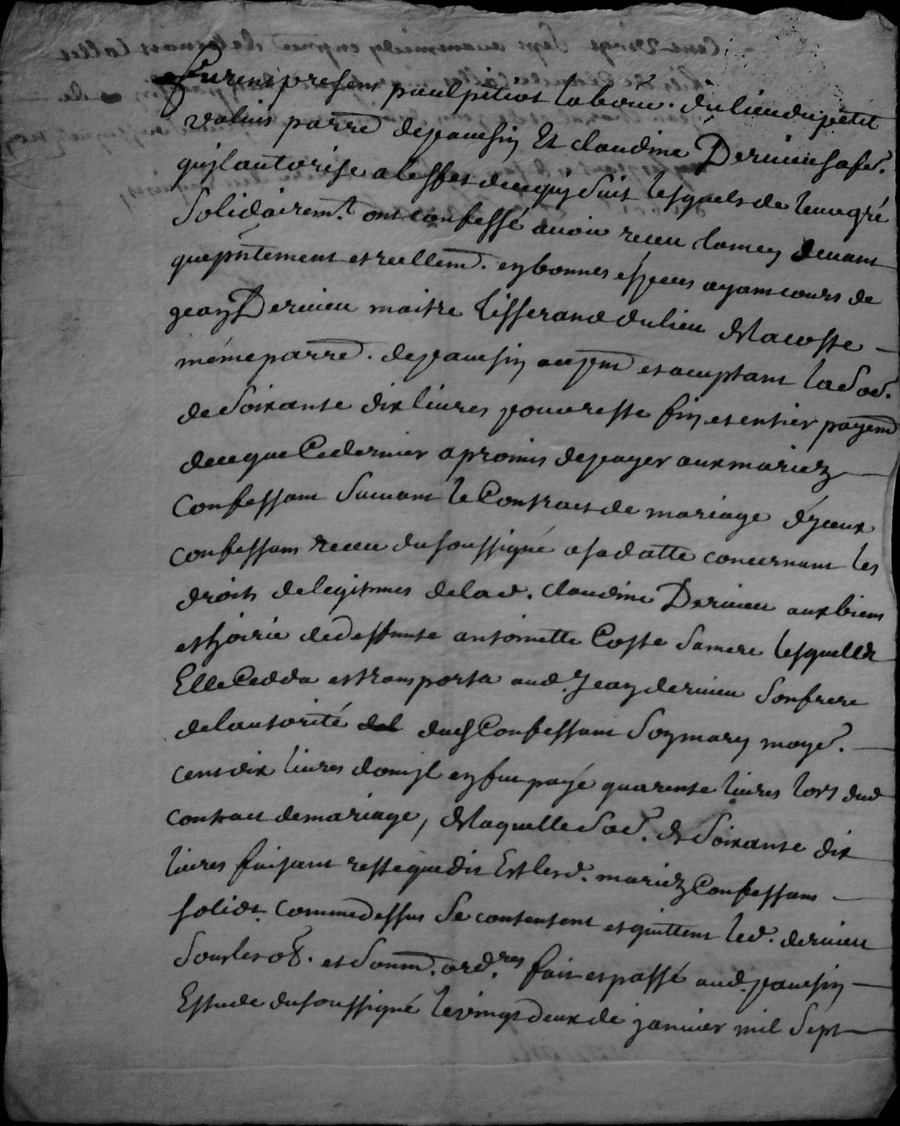 furent presens paul pitiot labour. du lieu du petit
valuis parre. de pauchin Et claudine Dervieu sa fe.
quil autorise a leffet de ce qui suit lesquels de leur gré
Solidairemt. ont confessé avoir receu tamen devant
que pntement et reellem. en bonnes especes ayant cours de
jean Dervieu maitre tisserand du lieu de la coste
même parre. de acceptant la Sod.
de Soixante dix livres pour reste fin et entier payemt
de ce que Ce dernier a promis de payer aux mariez
Confessant Suivant le Contract de mariage d'yceux
confessans receu du soussigné a sa datte concernant les
droits de legitimes de lad. claudine Dervieu aux biens
et hoirie de deffunte antoinette Coste Sa mere lesquelles
Elle Cedda et transporta aud. jean dervieu Son frere
de l'autorité dud Confessant Son mary moyen.
cent dix livres dont jl en fut payé quarente livres lors dud
contract de mariage, de laquelle Sod. de Soixante dix
livres faisant reste que dit Est lesd. mariez Confessans
solidt. Comme dessus Se contentent et quittent led. dervieu
Sous les ob. et Soum. ord.res fait et passé aud.
Estude du soussigné le vingt deux de janvier mil Sept